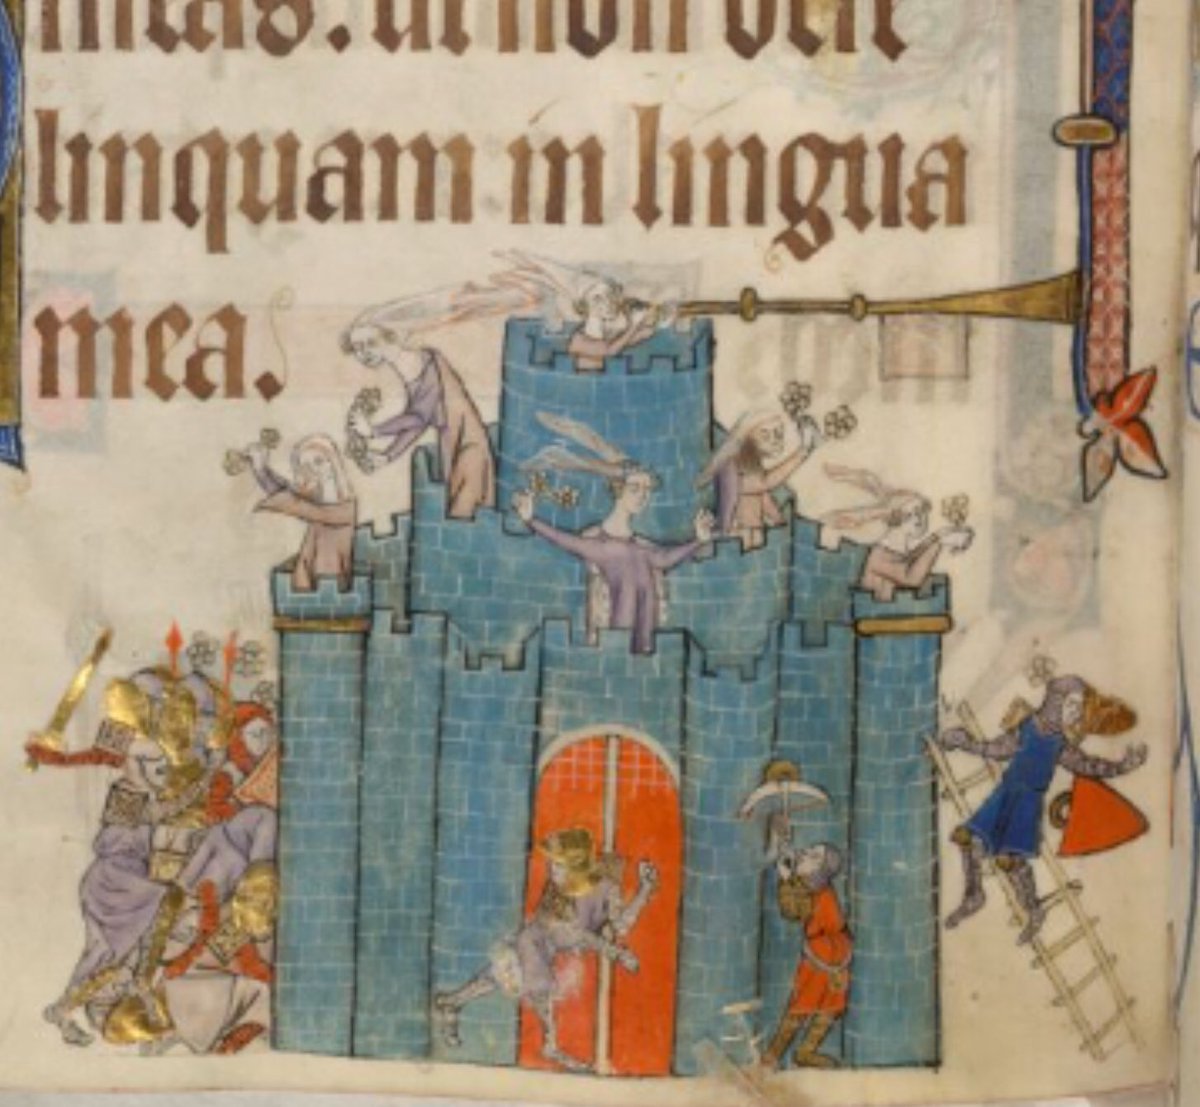 meas. ut non
linquam in lingua
mea.